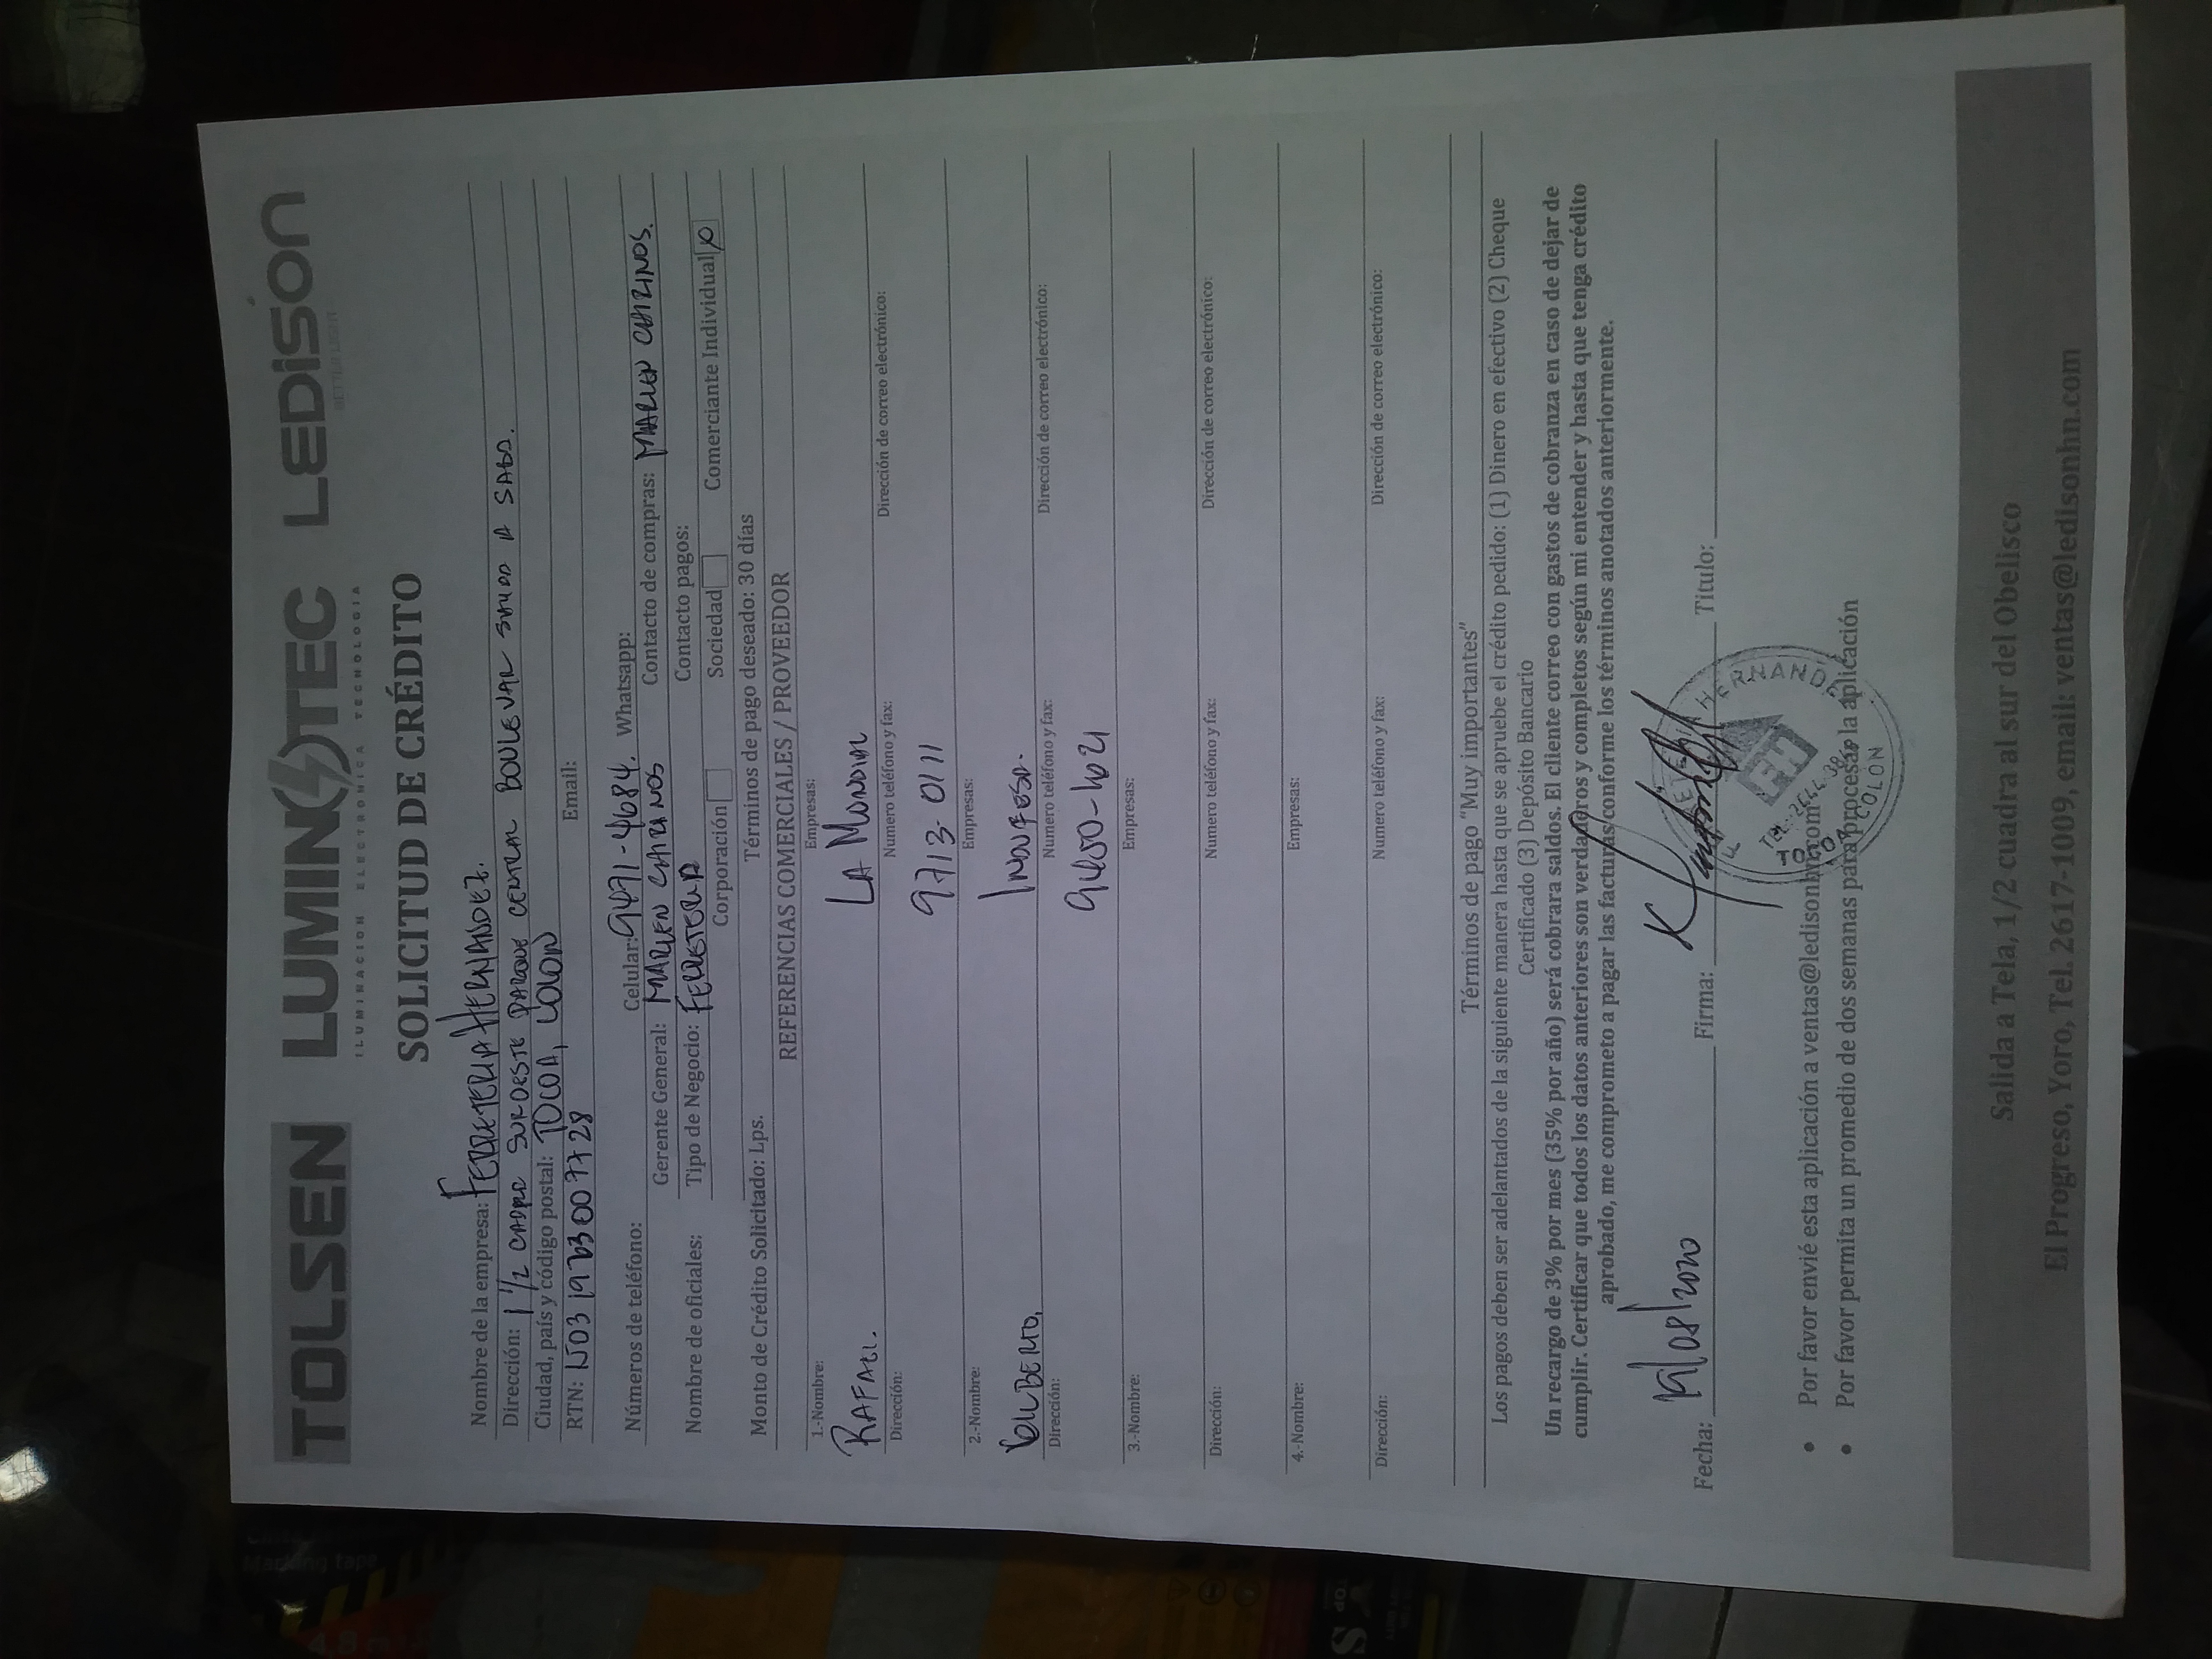 TOLSEN LUMINOTEC LEDISON
ILUMINACION ELECTRONICA TECNOLOGIA BETTER LIGHT
SOLICITUD DE CRÉDITO
Nombre de la empresa: FERRETERIA HERNANDEZ.
Dirección: 1 1/2 SUROESTE PARQUE CENTRAL BOULEVAR A SABA.
Ciudad, país y código postal: TOCOA, COLON
RTN: Email:
Números de teléfono: Celular: 9471-4684. Whatsapp:
Gerente General: MARLEN CHIRINOS Contacto de compras: MARLEN CHIRINOS.
Nombre de oficiales: Tipo de Negocio: FERRETERIA Contacto pagos:
Corporación Sociedad Comerciante Individual X
Monto de Crédito Solicitado: Lps. Términos de pago deseado: 30 días
REFERENCIAS COMERCIALES / PROVEEDOR
1.-Nombre: Empresas:
RAFAEL. LA MUNDIAL
Dirección: Numero teléfono y fax: Dirección de correo electrónico:
9713-0111
2.-Nombre: Empresas:
GILBERTO. INDUFESA.
Dirección: Numero teléfono y fax: Dirección de correo electrónico:
9450-1621
3.-Nombre: Empresas:
Dirección: Numero teléfono y fax: Dirección de correo electrónico:
4.-Nombre: Empresas:
Dirección: Numero teléfono y fax: Dirección de correo electrónico:
Términos de pago “Muy importantes”
Los pagos deben ser adelantados de la siguiente manera hasta que se apruebe el crédito pedido: (1) Dinero en efectivo (2) Cheque
Certificado (3) Depósito Bancario
Un recargo de 3% por mes (35% por año) será cobrara saldos. El cliente correo con gastos de cobranza en caso de dejar de
cumplir. Certificar que todos los datos anteriores son verdaderos y completos según mi entender y hasta que tenga crédito
aprobado, me comprometo a pagar las facturas conforme los términos anotados anteriormente.
Fecha: 19/08/2020 Firma: Titulo:
FERRETERIA HERNANDEZ
FH
TOCOA COLON
• Por favor envié esta aplicación a ventas@ledisonhn.com
• Por favor permita un promedio de dos semanas para procesar la aplicación
Salida a Tela, 1/2 cuadra al sur del Obelisco
El Progreso, Yoro, Tel. 2617-1009, email: ventas@ledisonhn.com